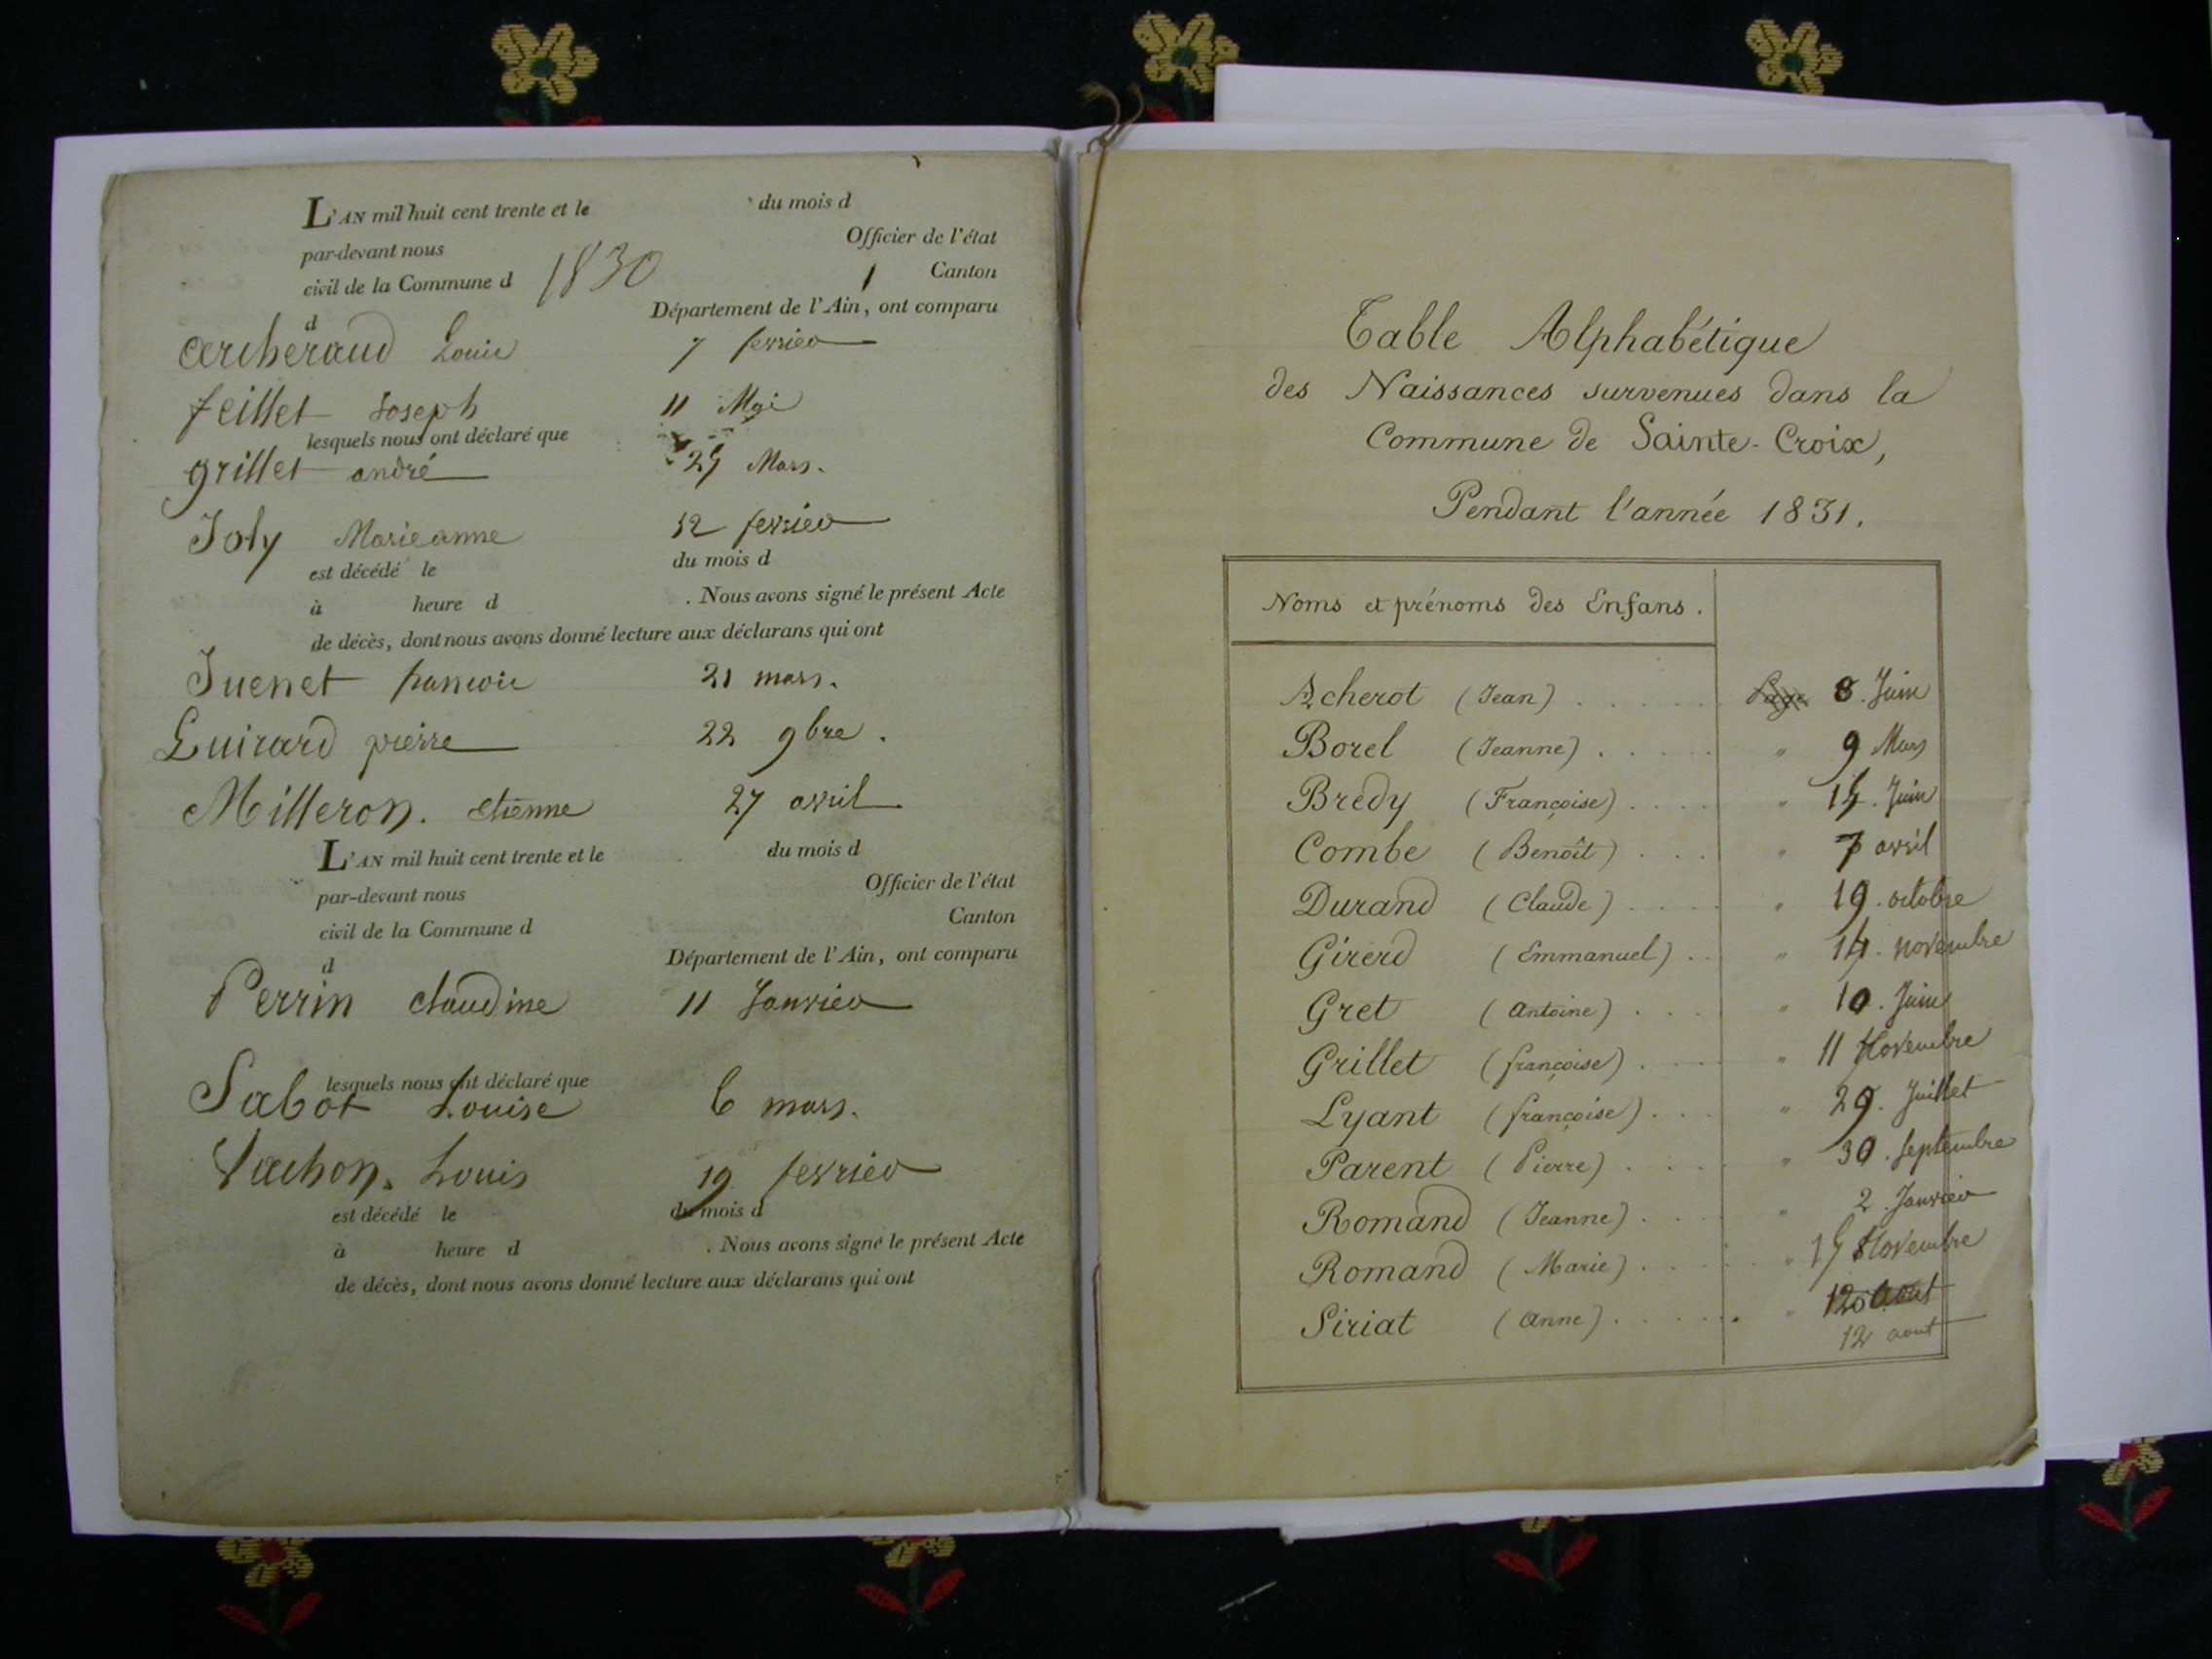 L'AN mil huit cent trente et le du mois d
par-devant nous Officier de l'état
civil de la Commune d 1830 Canton
d Département de l'Ain, ont comparu
Archeraud Louis 7 fevrier
feillet Joseph 11 Mai
lesquels nous ont déclaré que
grillet andré Mars.
Joly Marieanne 12 fevrier
est décédé le du mois d
à heure d . Nous avons signé le présent Acte
de décès, dont nous avons donné lecture aux déclarans qui ont
Juenet 21 mars.
Guirard pierre 22 9bre.
Milleron. etienne 27 avril
L'AN mil huit cent trente et le du mois d
par-devant nous Officier de l'état
civil de la Commune d Canton
d Département de l'Ain, ont comparu
Perrin claudine 11 Janvier
lesquels nous ont déclaré que
Sabot Louise 6 mars.
Vachon. Louis 19 fevrier
est décédé le du mois d
à heure d . Nous avons signé le présent Acte
de décès, dont nous avons donné lecture aux déclarans qui ont
Table Alphabétique
des Naissances survenues dans la
Commune de Sainte-Croix,
Pendant l'année 1831.
Noms et prénoms des Enfans.
Acherot (Jean) . . . . . Page 8. Juin
Borel (Jeanne) . . . . . " 9 Mars
Bredy (Françoise) . . . . " Juin
Combe (Benoît) . . . " 7 avril
Durand (Claude) . . . . " 19. octobre
Girerd (Emmanuel) . . " 14. novembre
Gret (Antoine) . . . " 10. Juin
Grillet (françoise) . . . . " 11 Novembre
Lyant (françoise) . . . " 29. Juillet
Parent (Pierre) . . . . " 30. septembre
Romand (Jeanne) . . . . " 2. Janvier
Romand (Marie) . . . . . " Novembre
Siriat (Anne) . . . . . . " aout
12 aout